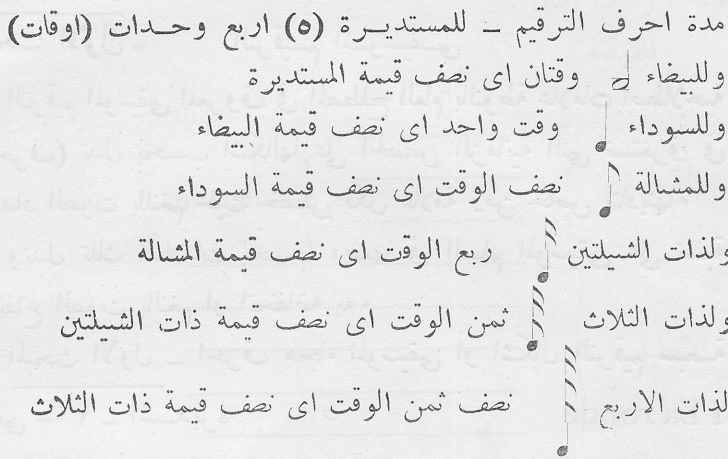 مدة احرف الترقيم – للمستديرة (٥) اربع وحدات (اوقات)
وللبيضاء وقتان اى نصف قيمة المستديرة
وللسوداء وقت واحد اى نصف قيمة البيضاء
وللمشالة نصف الوقت اى نصف قيمة السوداء
ولذات الشيلتين ربع الوقت اى نصف قيمة المشالة
ولذات الثلاث ثمن الوقت اى نصف قيمة ذات الشيلتين
لذات الاربع نصف ثمن الوقت اى نصف قيمة ذات الثلاث